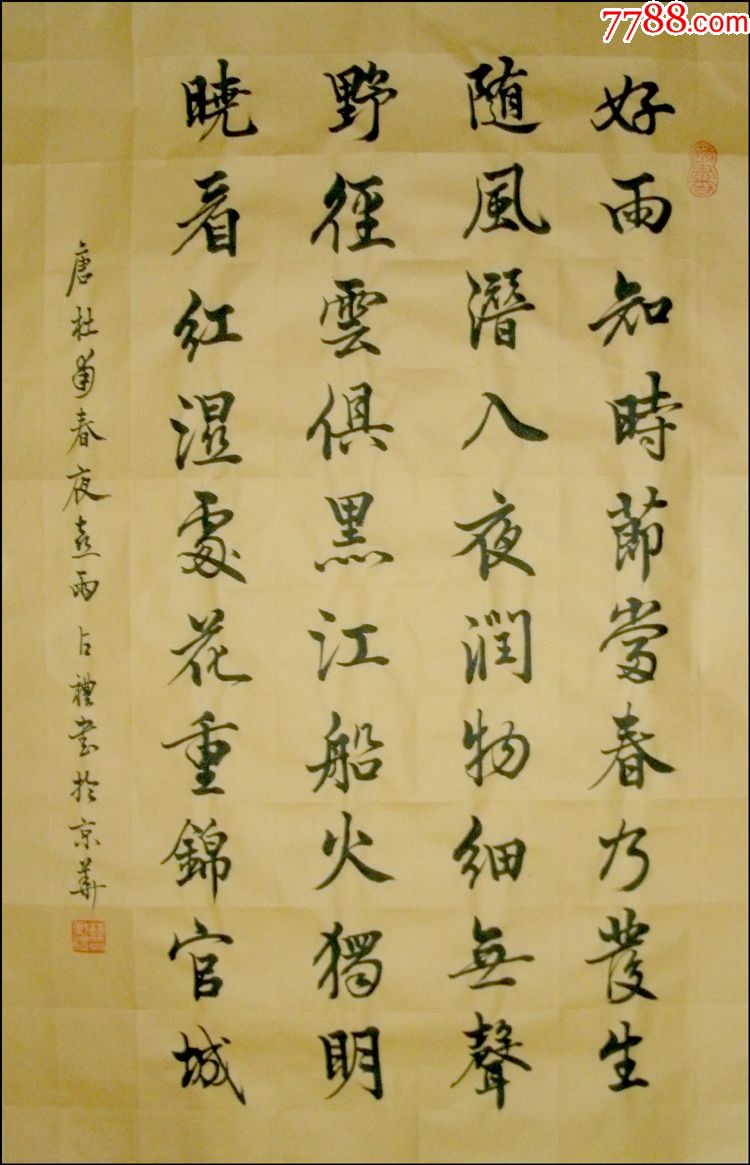 7788.com
好雨知時節當春乃發生
随風潛入夜潤物細無聲
野徑雲俱黑江船火獨明
曉看紅濕處花重錦官城
唐杜甫春夜喜雨占禮書於京華